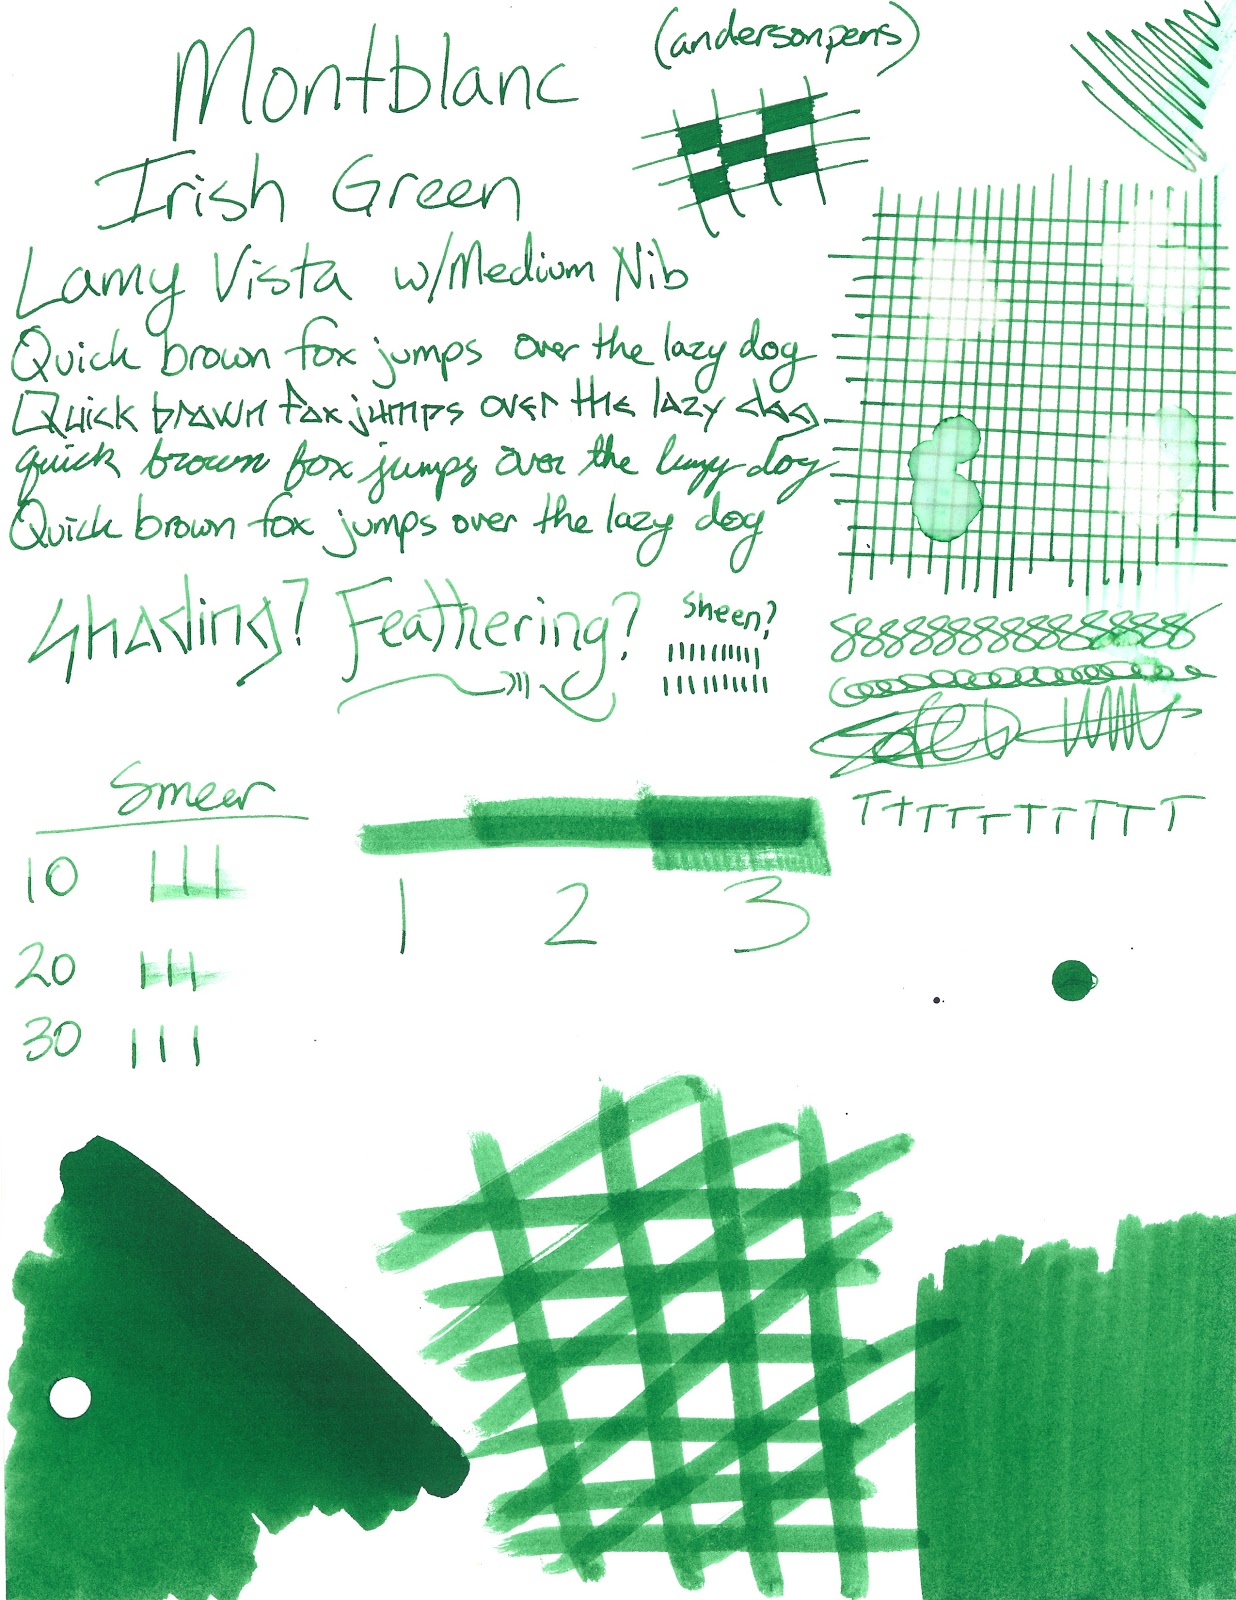 Montblanc
(andersonpens)
Irish Green
Lamy Vista w/Medium Nib
Quick brown fox jumps over the lazy dog
Quick brown fox jumps over the lazy dog
quick brown fox jumps over the lazy dog
Quick brown fox jumps over the lazy dog
Shading? Feathering? Sheen?
8888888888888
TTTTTTTTTTT
Smear
10
1 2 3
20
30